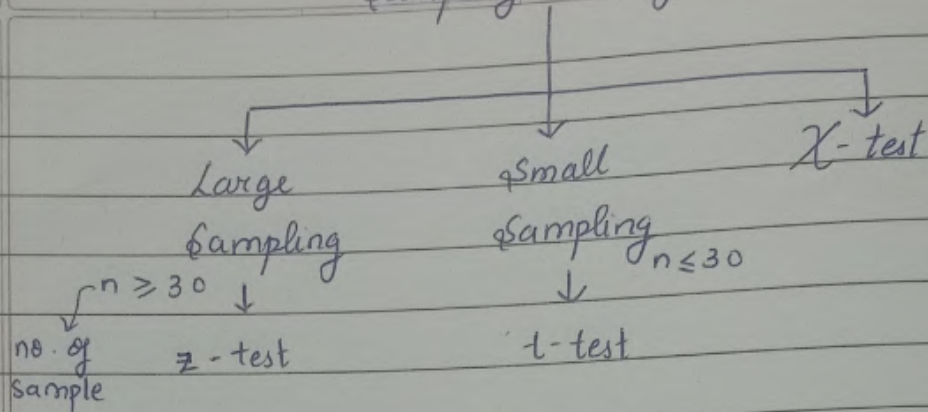 Large
Sampling
n ≥ 30
no. of
sample
z - test
Small
Sampling
n ≤ 30
t - test
χ - test